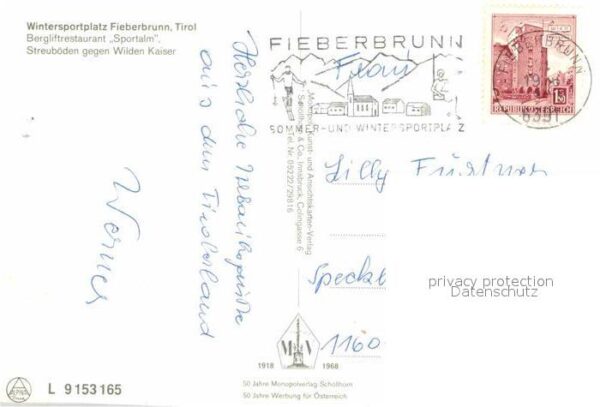 Wintersportplatz Fieberbrunn, Tirol
Bergliftrestaurant „Sportalm",
Streuböden gegen Wilden Kaiser
Herzliche
aus dem Tirolerland
Werner
FIEBERBRUNN
SOMMER-UND WINTERSPORTPLATZ
FIEBERBRUNN
6391
REPUBLIK ÖSTERREICH
Frau
Lilly
1160
Kunst- und Ansichtskarten-Verlag
Schöllhorn & Co., Innsbruck, Colingasse 6
Tel. Nr. 05222/29816
privacy protection
Datenschutz
M V
1918 1968
50 Jahre Monopolverlag Schöllhorn
50 Jahre Werbung für Österreich
L 9153165